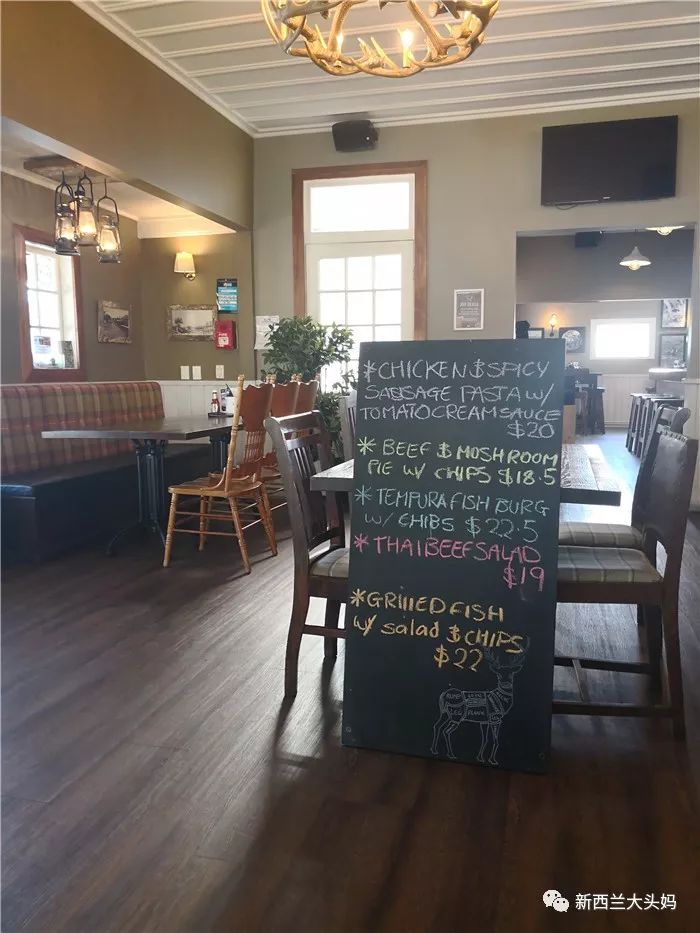 *CHICKEN $ SPICY
SAUSAGE PASTA W/
TOMATO CREAM SAUCE
$20
* BEEF $ MOSHROOM
PIE W/ CHIPS $18.5
* TEMPURA FISH BURG
W/ CHIBS $22.5
* THAI BEEF SALAD
$19
*GRIllED FISH
w/ salad $ CHIPS
$22
新西兰大头妈